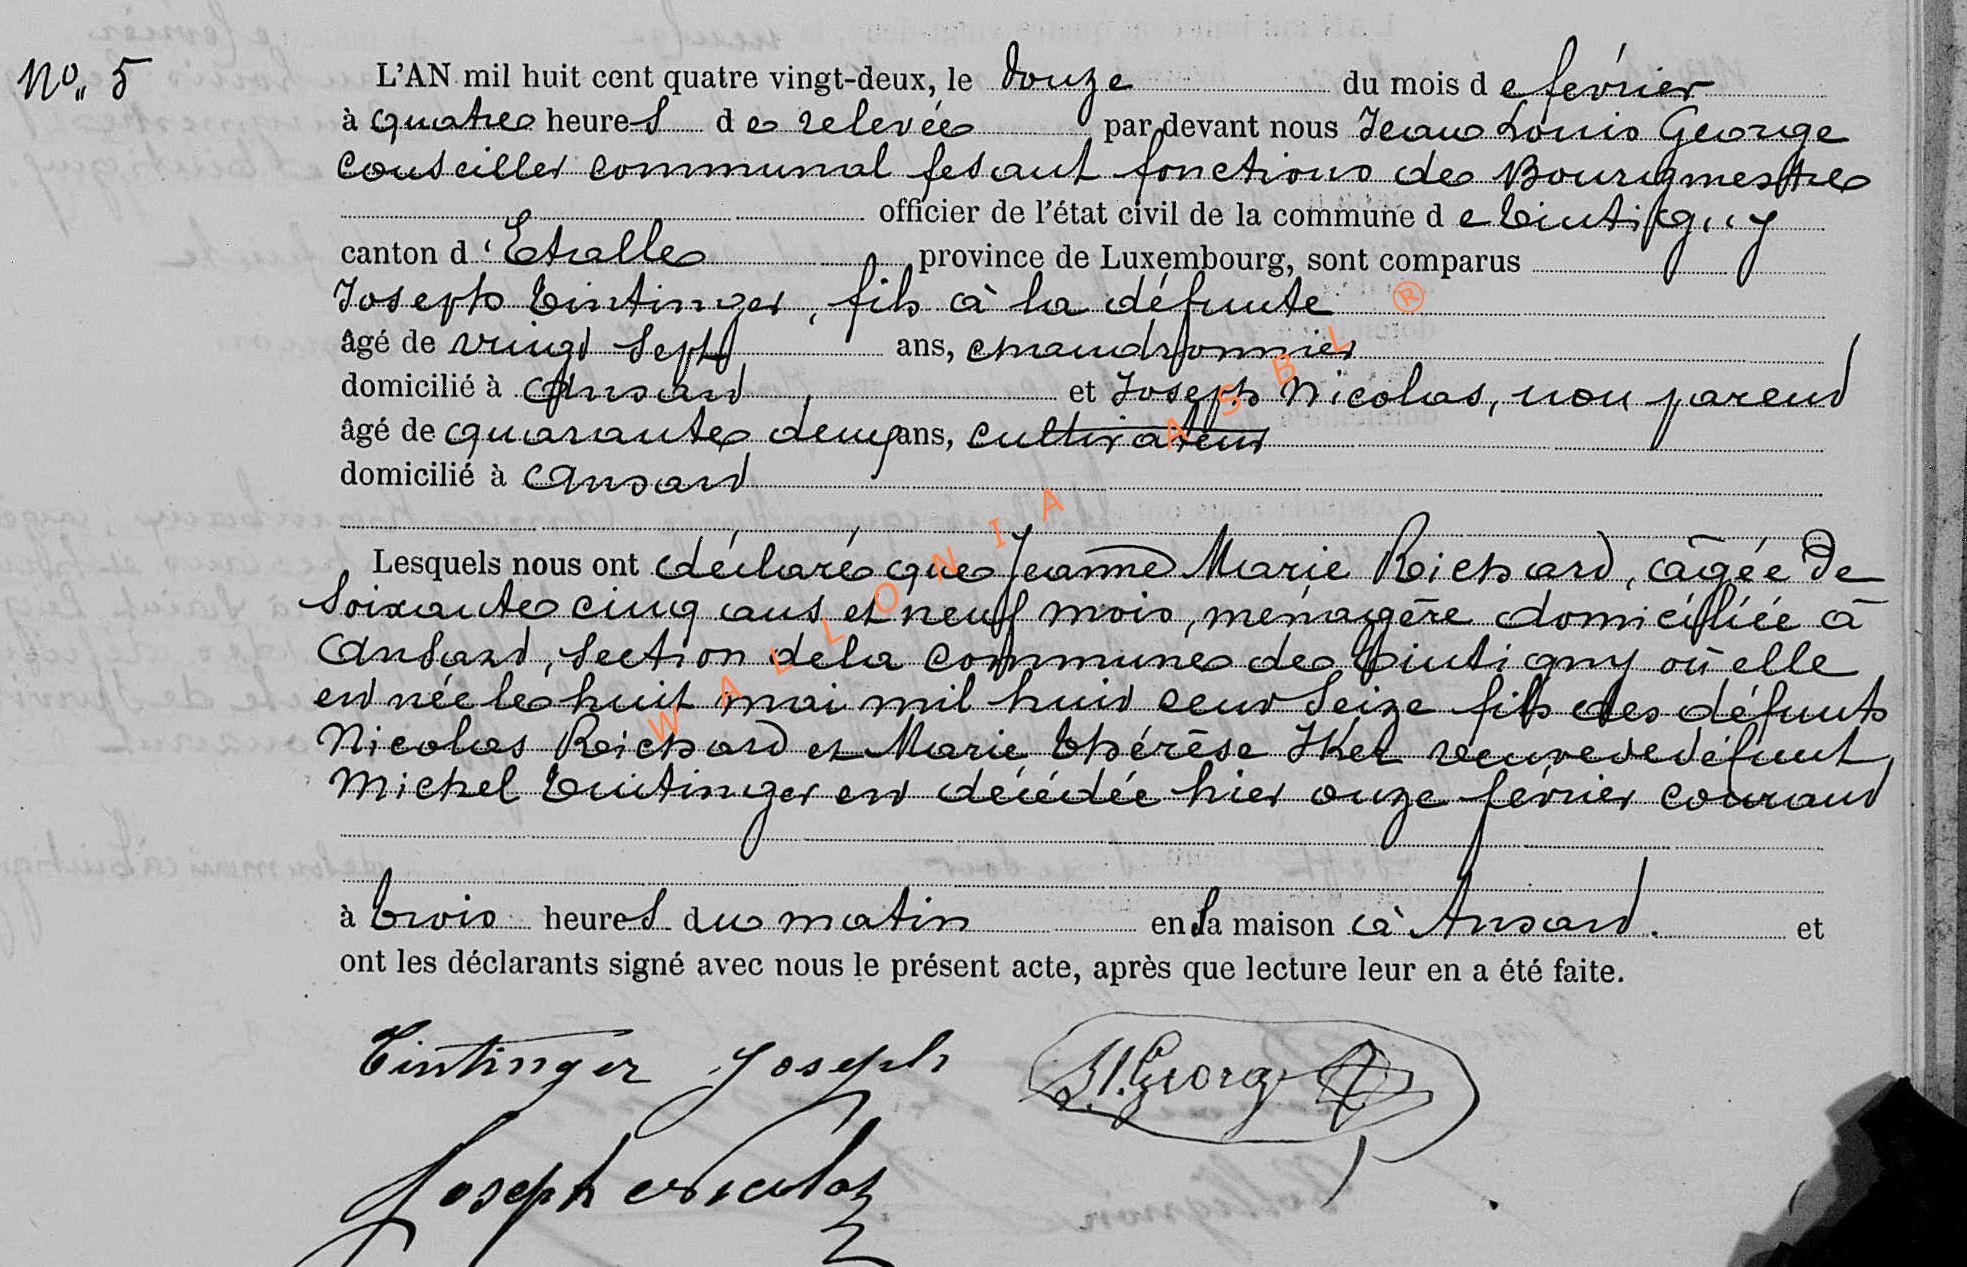 No. 5
L'AN mil huit cent quatre vingt-deux, le douze du mois de février
à quatre heures de relevée par devant nous Jean Louis George
conseiller communal fesant fonctions de Bourgmestre
officier de l'état civil de la commune de Tintigny
canton d'Etalle province de Luxembourg, sont comparus
Joseph Tintinger, fils à la défunte
âgé de vingt sept ans, chaudronnier
domicilié à Ansart, et Joseph Nicolas, non parent
âgé de quarante deux ans, cultivateur
domicilié à Ansart
Lesquels nous ont déclaré que Jeanne Marie Richard, âgée de
soixante cinq ans et neuf mois, ménagère domiciliée à
Ansart, section de la commune de Tintigny où elle
est née le huit mai mil huit cent seize fils des défunts
Nicolas Richard et Marie Thérèse veuve de défunt
Michel Tintinger est décédée hier onze février courant
à trois heures du matin en sa maison à Ansart. et
ont les déclarants signé avec nous le présent acte, après que lecture leur en a été faite.
Tintinger Joseph
J.l. George
Joseph Nicolas
WALLONIA ASBL ®